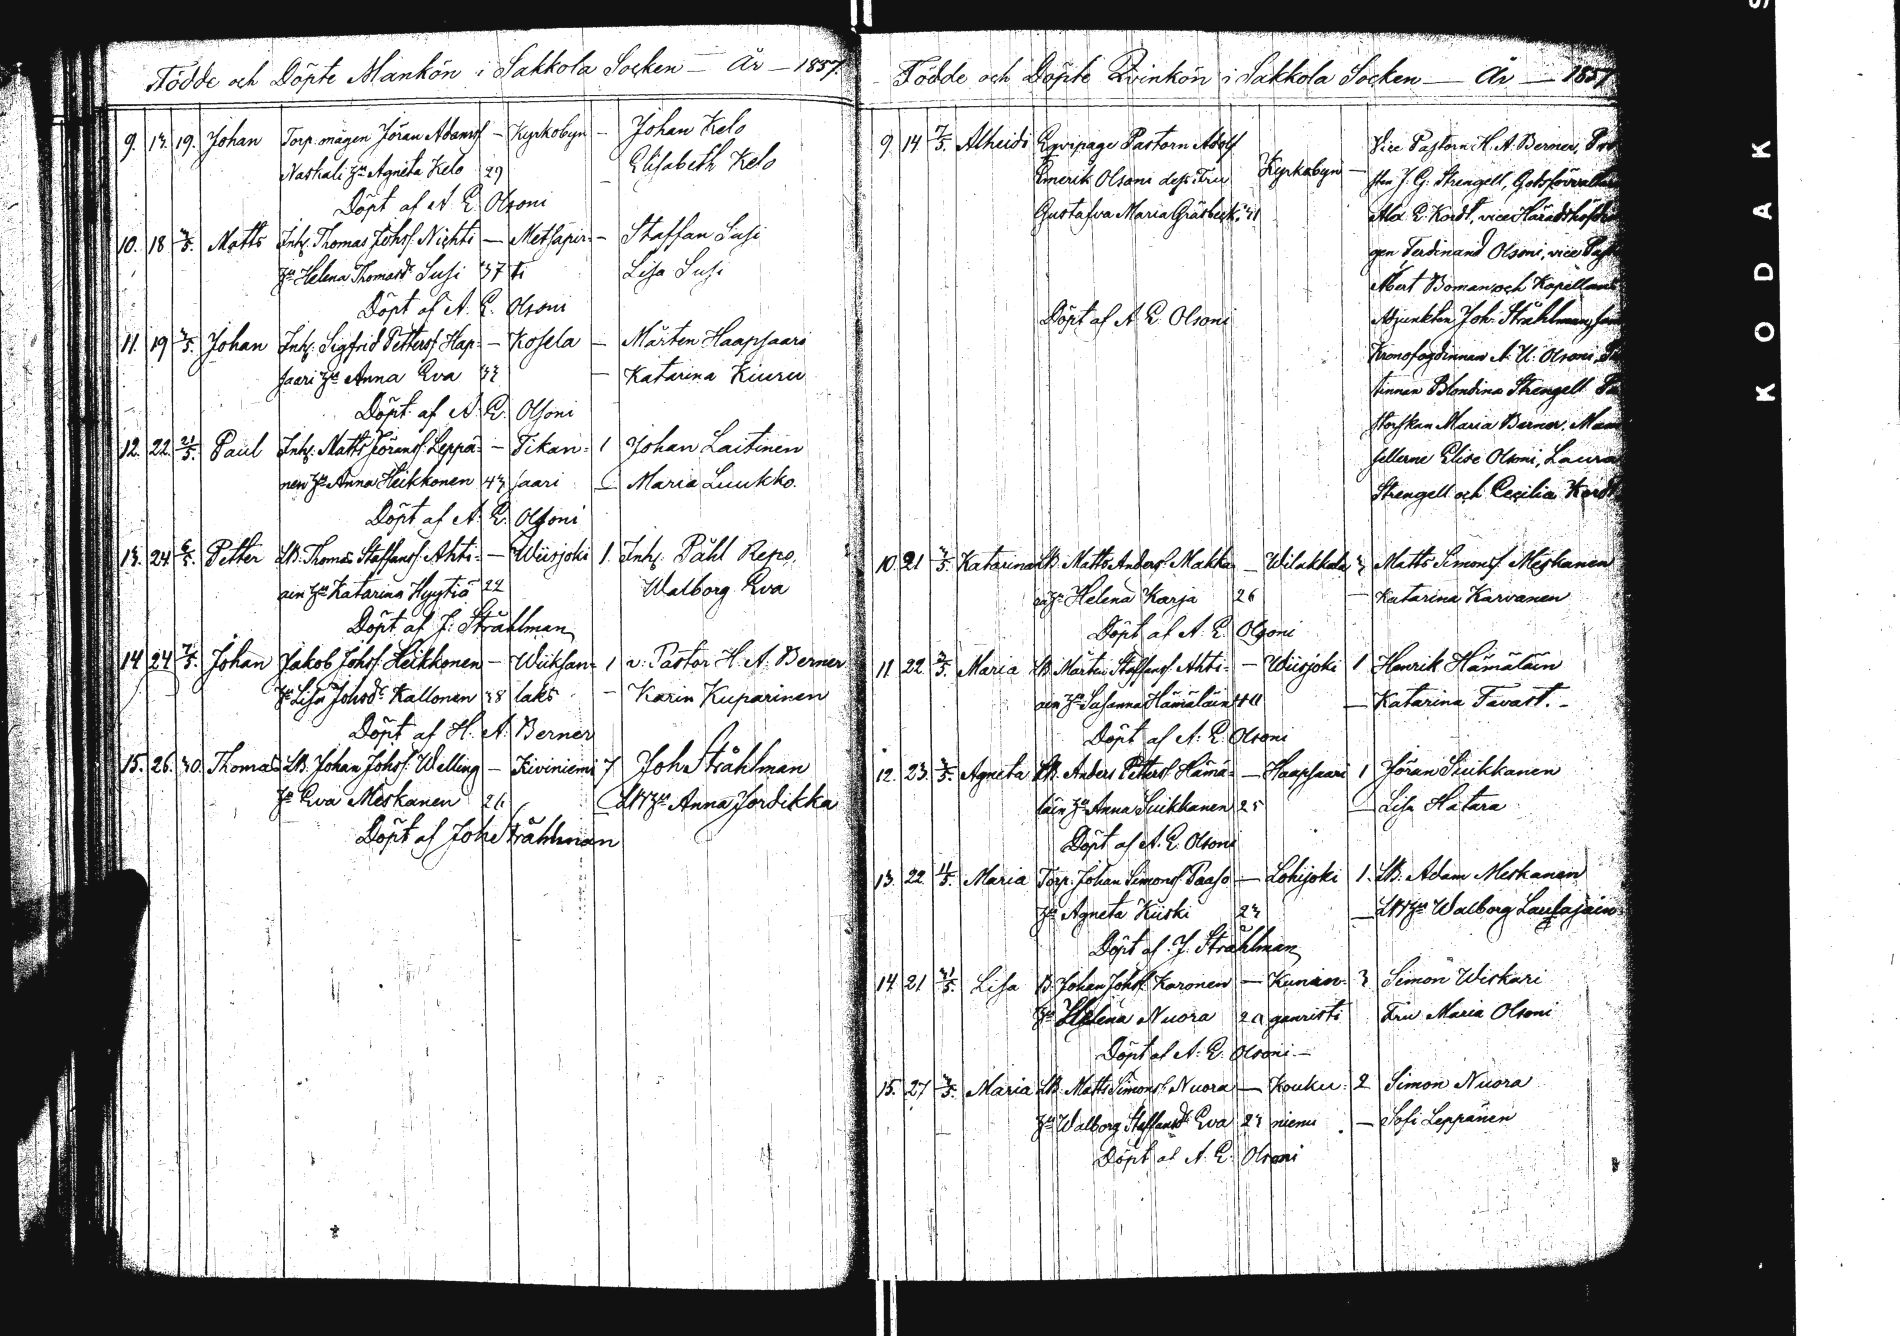 Födde och Döpte Mankön i Sakkola Socken — År — 1857.
9. 13. 19. Johan Torp. mågen Jöran Adamsf — Kyrkobyn — Johan Kelo
Naskali Hu Agneta Kelo 29 Elisabeth Kelo
Döpt af A. E. Olsoni
10. 18 3/5. Matts Inh. Thomas Johsf. Nichti — Metsäpir- — Staffan Susi
Hu Helena Thomasdr Susi 37 ti Lisa Susi
Döpt af A. E. Olsoni
11. 19 3/5. Johan Inh. Sigfrid Pettersf. Hap- — Kosela — Mårten Haapsaari
saari Hu Anna Eva 33 — Katarina Kiuru
Döpt af A. E. Olsoni
12. 22. 21/5. Paul Inh. Matts Jöransf. Leppä- — Tikan- 1 Johan Laitinen
nen Hu Anna Heikkonen 43 saari — Maria Luukko.
Döpt af A. E. Olsoni
13. 24. 6/5. Petter LB. Thomas Staffansf. Ahti- — Wiisjoki 1. Inh. Påhl Repo.
ain Hu Katarina Hyytiä 22 Walborg Eva
Döpt af J. Stråhlman
14 24 7/5. Johan Jakob Johsf. Heikkonen — Wiiksan- 1 v. Pastor H. A. Berner
Hu Lisa Johsdr Kallonen 38 laks — Karin Kuparinen
Döpt af H. A. Berner
15. 26. 30. Thomas LB. Johan Johsf. Welling — Kiviniemi 7 Joh Stråhlman
Hu Eva Meskanen 26 Hu Anna Jordikka
Döpt af Joh Stråhlman
Födde och Döpte Qvinkön i Sakkola Socken — År — 1857
9. 14 7/5. Alheidi Eqvipage Pastorn Adolf Vice Pastorn H. A. Berner,
Emerik Olsoni dess Fru Kyrkobyn — J. G. Strengell, Godsförvaltar
Gustafva Maria Gräsbeck. 31 Alex. E. Kordt, vice Häradshöfdin
gen Ferdinand Olsoni, vice
Albert Boman och Kapellans
Döpt af A. E. Olsoni Adjunkten Joh. Stråhlman,
Kronofogdinnan A. U. Olsoni,
tinnan Blondina Strengell
storskan Maria Berner, Mam
sellerne Elise Olsoni, Laura
Strengell och Cecilia Kordt
10. 21 3/5. Katarina LB. Matts Andersf. Makka — Wilakkala 3 Matts Simonsf. Meskanen
Hu Helena Karja 26 — Katarina Karvanen
Döpt af A. E. Olsoni
11 22. 3/5. Maria LB. Mårten Staffansf. Ahti- — Wiisjoki 1 Henrik Hämäläin
ain Hu Susanna Hämäläin 40 — Katarina Tavast. —
Döpt af A. E. Olsoni
12. 23. 3/5. Agneta LB. Anders Pettersf. Hämä- — Haapsaari 1 Jöran Suikkanen
läin Hu Anna Suikkanen 25 — Lisa Hatara
Döpt af A. E. Olsoni
13. 22 4/5. Maria Torp. Johan Simonsf. Paaso — Lohijoki 1. LB. Adam Meskanen
Hu Agneta Kiiski 23 — Hu Walborg Laulajain
Döpt af J. Stråhlman
14 21 31/5. Lisa B. Johan Johsf. Karonen — Kunin- 3 Simon Wiskari
Hu Helena Nuora 20 ganristi Fru Maria Olsoni
Döpt af A. E. Olsoni —
15. 27 3/5. Maria LB. Matts Simonsf. Nuora — Kouku- 2 Simon Nuora
Hu Walborg Staffansdr Eva 23 niemi — Sofi Leppänen
Döpt af A. E. Olsoni
K O D A K S